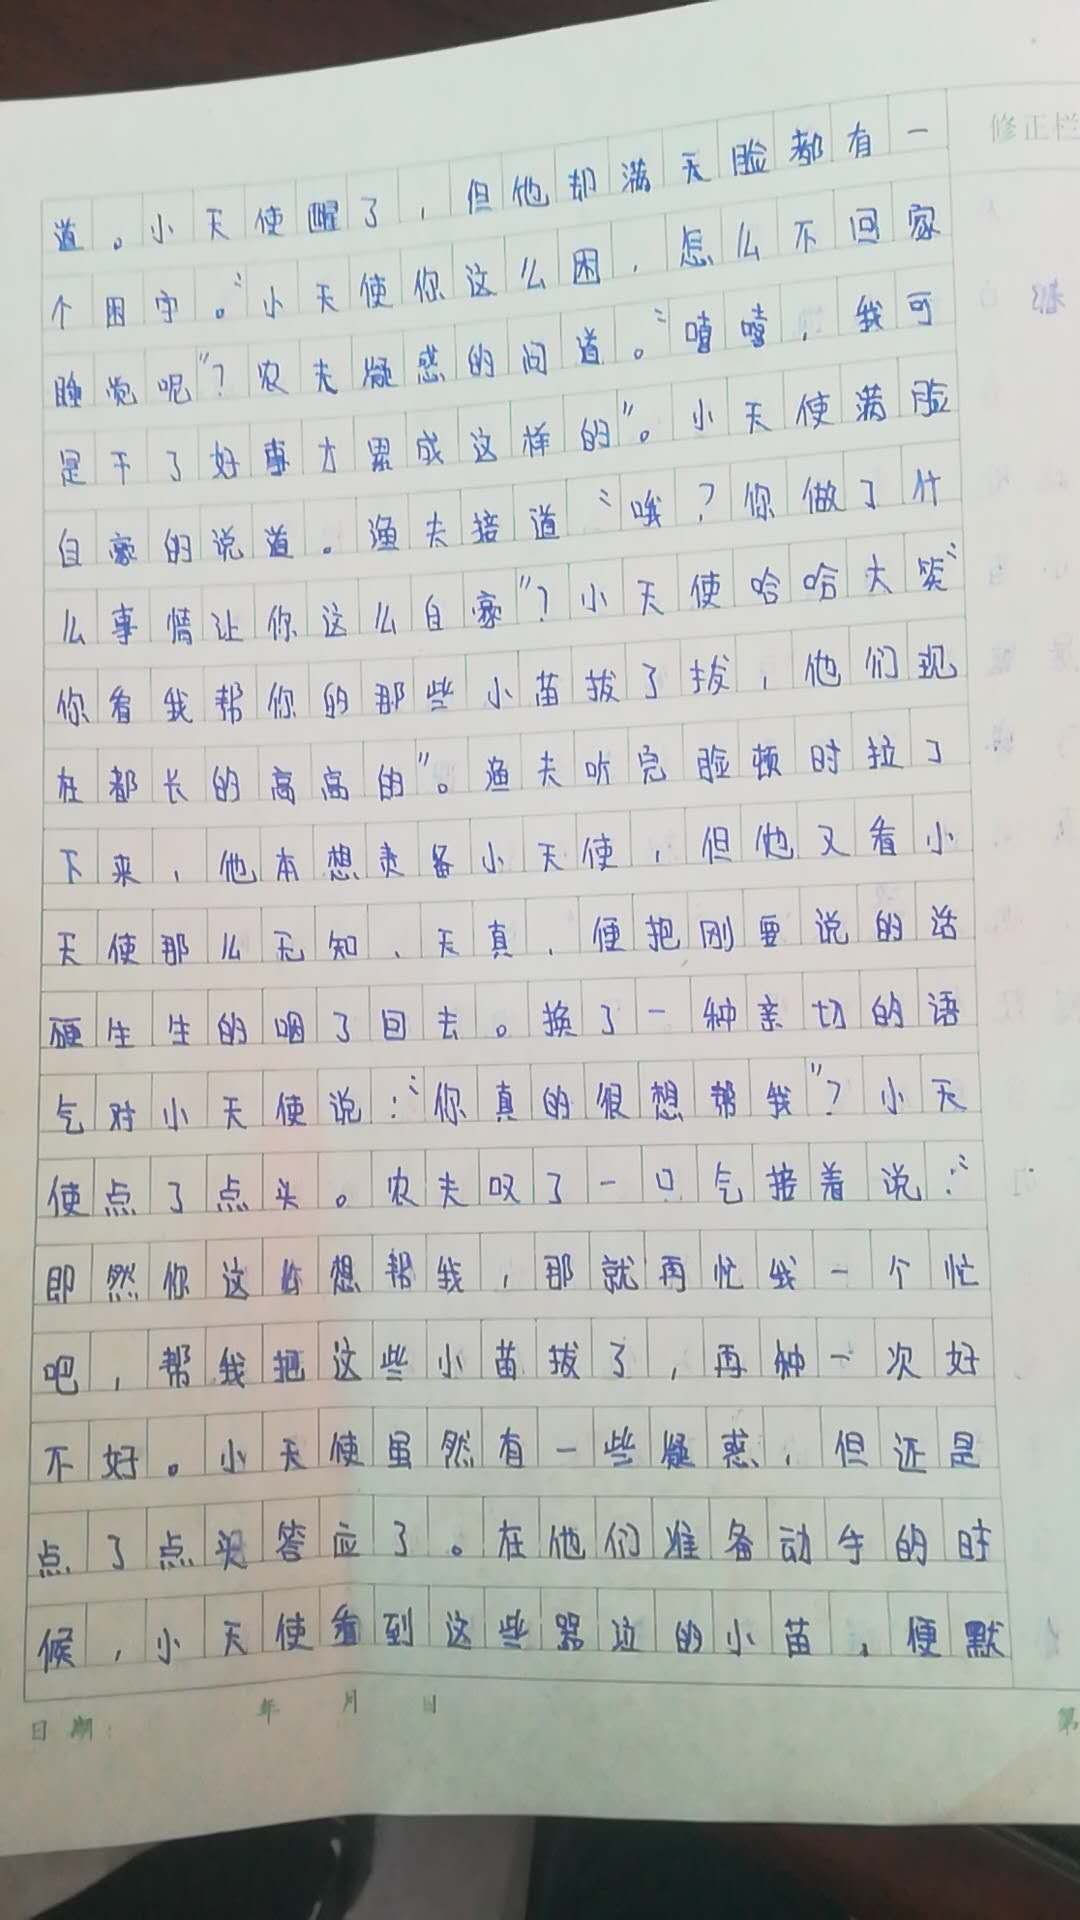 修正栏
道。小天使醒了，但他却满天脸都有一
个困字。“小天使你这么困，怎么不回家
睡觉呢”？农夫疑惑的问道。“嘻嘻，我可
是干了好事才累成这样的”。小天使满脸
自豪的说道。渔夫接道“哦？你做了什
么事情让你这么自豪”？小天使哈哈大笑“
你看我帮你的那些小苗拔了拔，他们现
在都长的高高的”。渔夫听完脸顿时拉了
下来，他本想责备小天使，但他又看小
天使那么无知、天真，便把刚要说的话
硬生生的咽了回去。换了一种亲切的语
气对小天使说：“你真的很想帮我”？小天
使点了点头。农夫叹了一口气接着说：“
即然你这么想帮我，那就再忙我一个忙
吧，帮我把这些小苗拔了，再种一次好
不好。小天使虽然有一些疑惑，但还是
点了点头答应了。在他们准备动手的时
候，小天使看到这些器边的小苗，便默
日期： 年 月 日
第